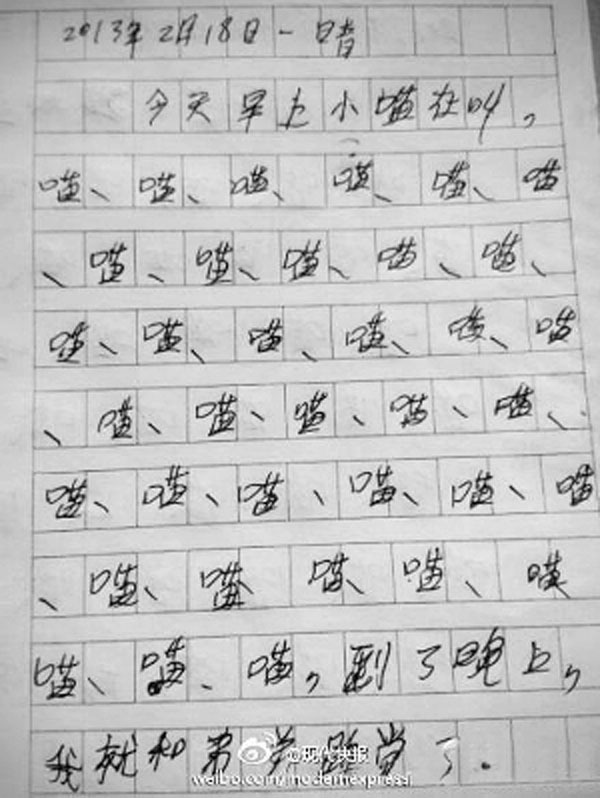 2013年2月18日 一 晴
今天早上小喵在叫，
喵、喵、喵、喵、喵、喵
、喵、喵、喵、喵、喵、
喵、喵、喵、喵、喵、喵
、喵、喵、喵、喵、喵、
喵、喵、喵、喵、喵、喵
、喵、喵、喵、喵、喵
喵、喵、喵，到了晚上，
我就和弟弟睡觉了.
@现代快报
weibo.com/modernexpress